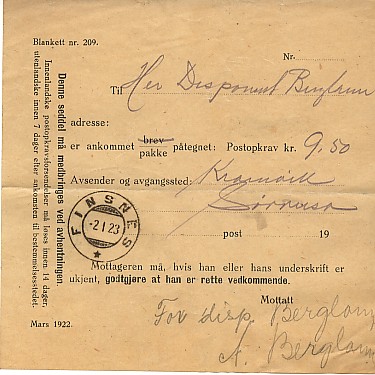 Blankett nr. 209.
Nr.
Til Her Disponent Berglum
adresse:
er ankommet brev pakke påtegnet: Postopkrav kr. 9.50
Avsender og avgangssted:
FINSNES
-2.1.23
post 19
Mottageren må, hvis han eller hans underskrift er
ukjent, godtgjøre at han er rette vedkommende.
Mottatt
For disp Berglum
A. Berglum
Mars 1922.
Denne seddel må medbringes ved avhentningen.
Innenlandske postopkravsforsendelser må løses innen 14 dager,
utenlandske innen 7 dager efter ankomsten til bestemmelsesstedet.